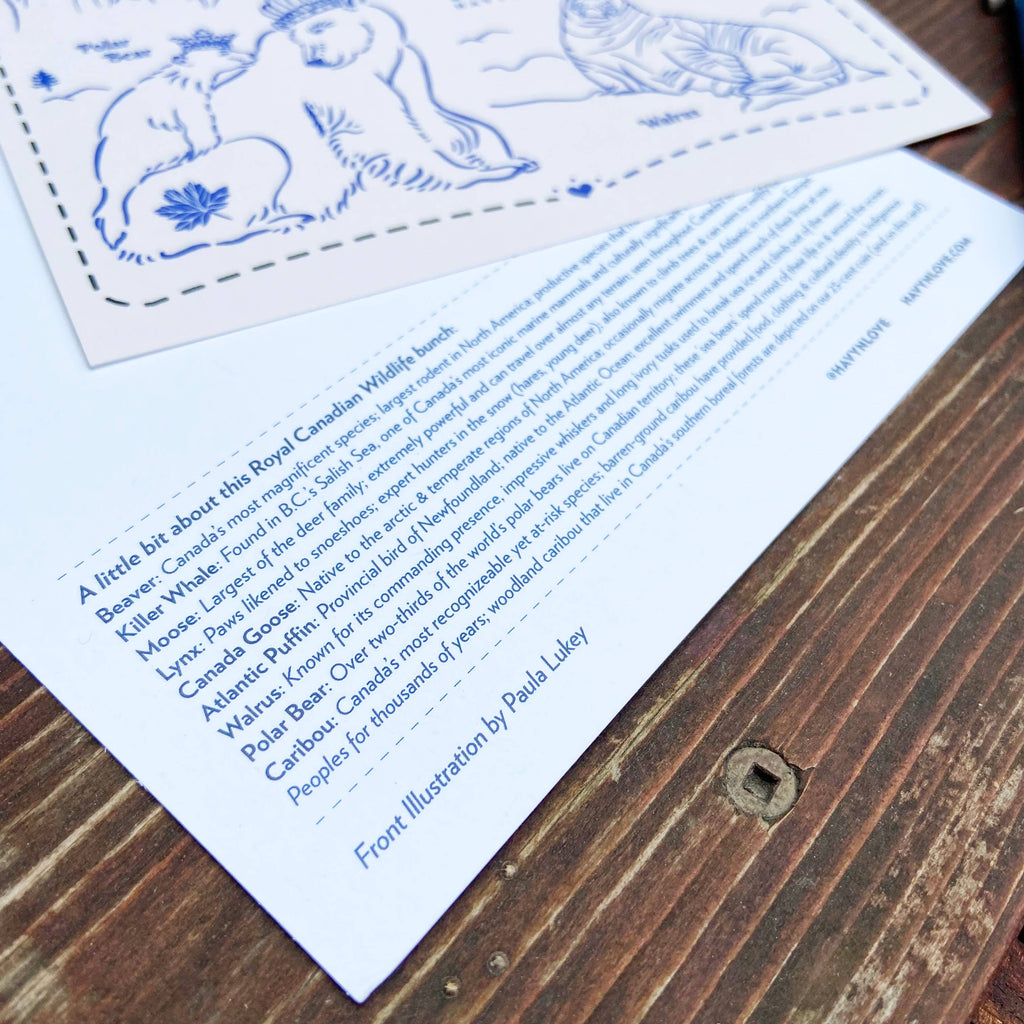 Polar
Bear
Walrus
A little bit about this Royal Canadian Wildlife bunch:
Beaver: Canada's most magnificent species; largest rodent in North America; productive species that
Killer Whale: Found in B.C.'s Salish Sea, one of Canada's most iconic marine mammals and culturally
Moose: Largest of the deer family; extremely powerful and can travel over almost any terrain; seen throughout
Lynx: Paws likened to snoeshoes; expert hunters in the snow (hares, young deer); also known to climb trees &
Canada Goose: Native to the arctic & temperate regions of North America; occasionally migrate across the Atlantic to northern Europe
Atlantic Puffin: Provincial bird of Newfoundland; native to the Atlantic Ocean; excellent swimmers and spend much of their lives at sea
Walrus: Known for its commanding presence, impressive whiskers and long ivory tusks used to break sea ice and climb out of the water
Polar Bear: Over two-thirds of the world's polar bears live on Canadian territory; these 'sea bears' spend most of their life in & around the ocean
Caribou: Canada's most recognizeable yet at-risk species; barren-ground caribou have provided food, clothing & cultural identity to Indigenous
Peoples for thousands of years; woodland caribou that live in Canada's southern boreal forests are depicted on our 25-cent coin (and on this card)
Front Illustration by Paula Lukey
@HAVYNLOVE
HAVYNLOVE.COM